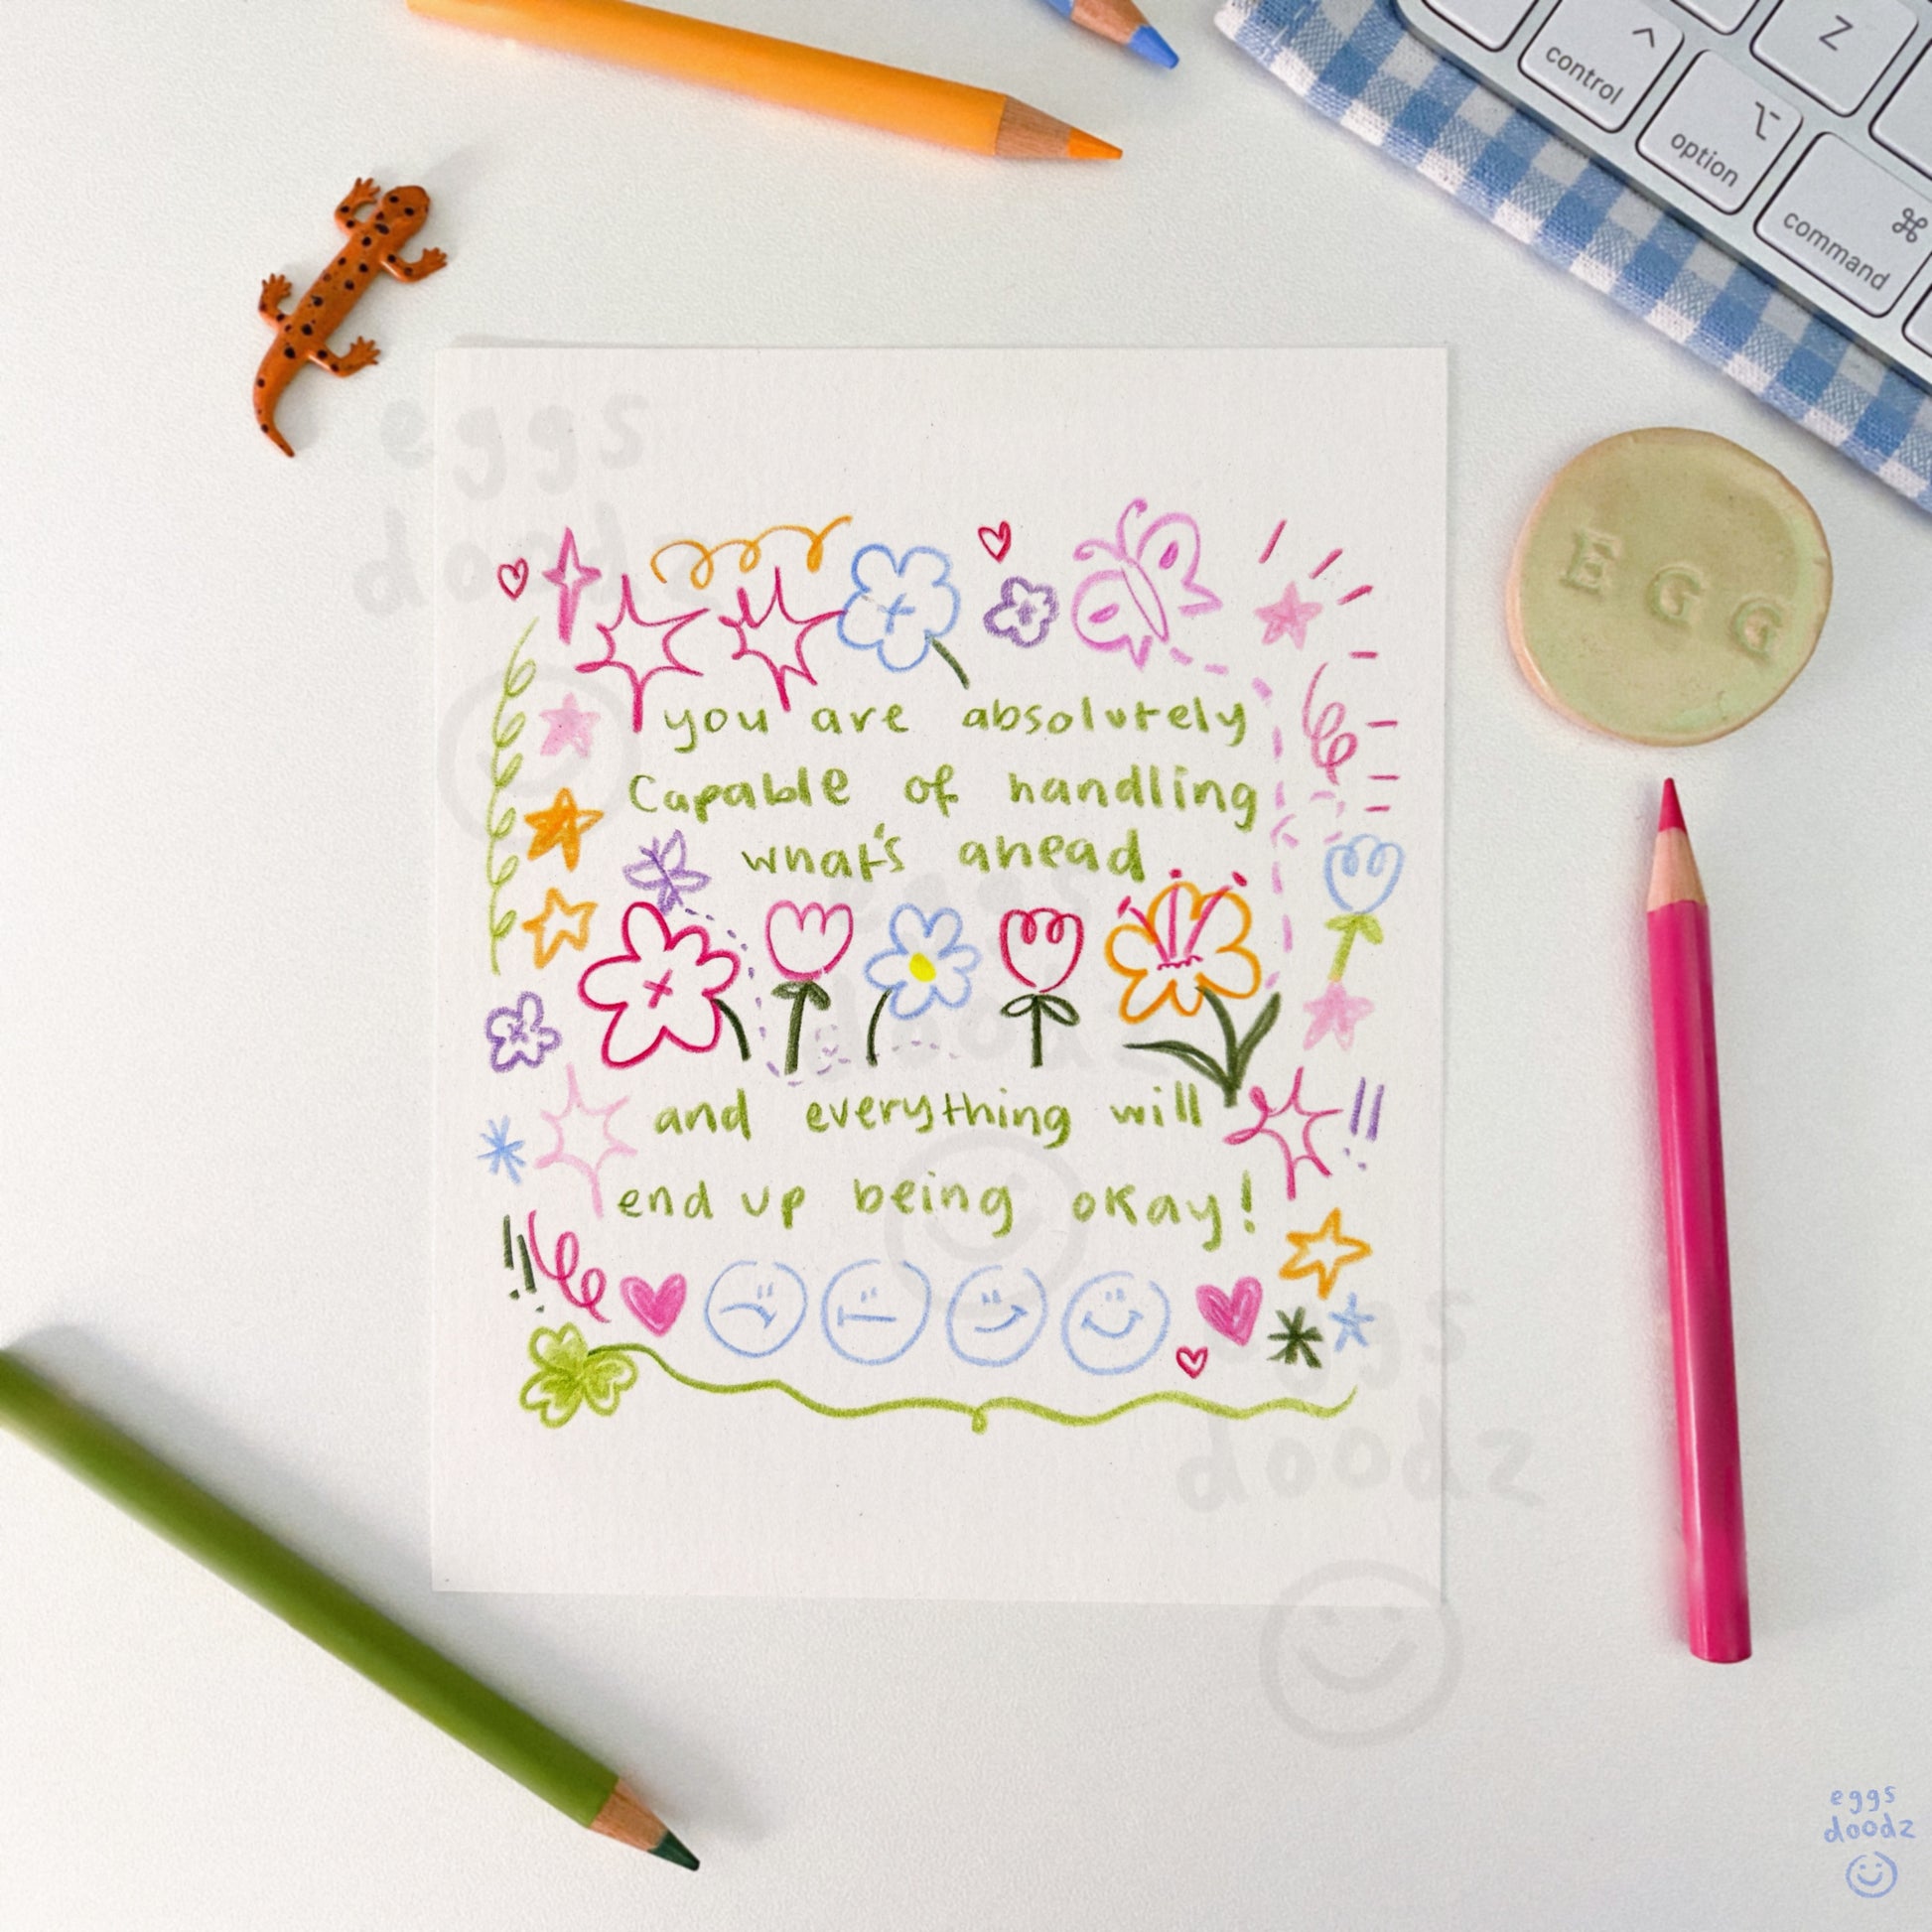 Z
control
option
command
EGG
eggs
doodz
you are absolutely
Capable of handling
what's ahead
eggs
doodz
and everything will
end up being okay!
eggs
doodz
eggs
doodz